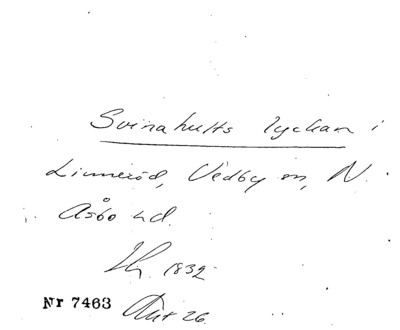 Svinahults lyckan i
Linneröd, Vedby sn, N.
Åsbo hd.
1832
Nr 7463 Akt 26